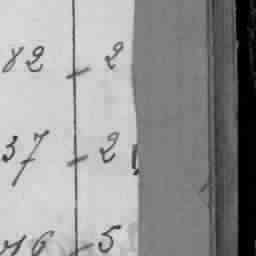 82 - 2
37 - 2
16 - 5